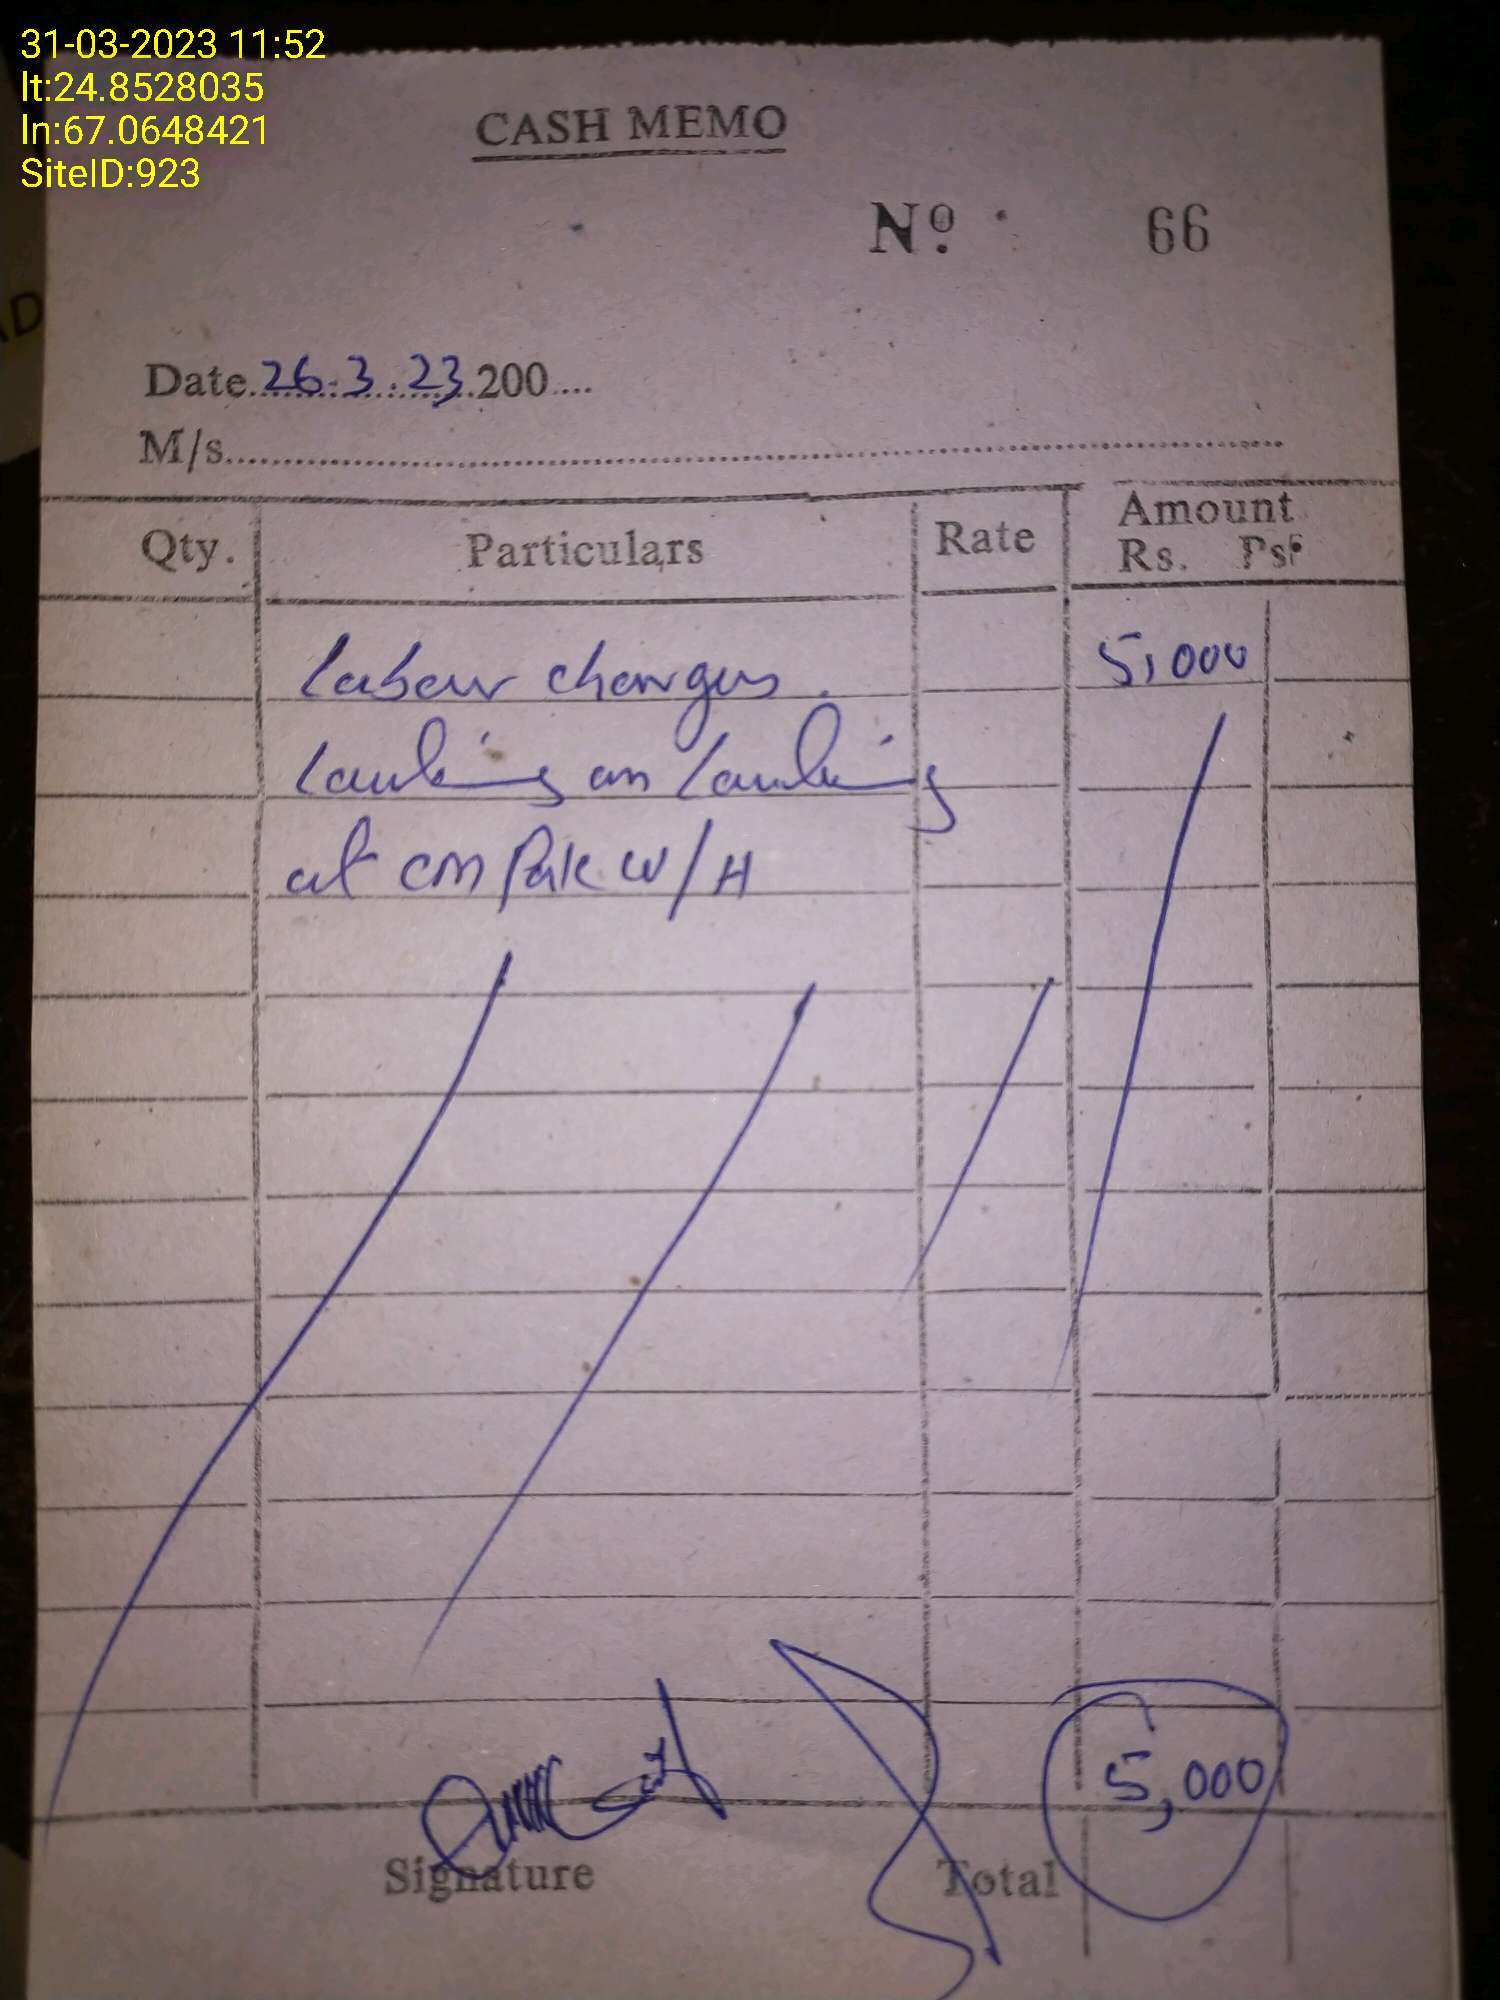 31-03-2023 11:52
lt:24.8528035
ln:67.0648421
SiteID:923
CASH MEMO
Nº. 66
Date 26.3.23 200....
M/s
Qty. Particulars Rate Amount
Rs. Ps.
labour charges. 5,000
at CM Pak W/H
5,000
Signature Total